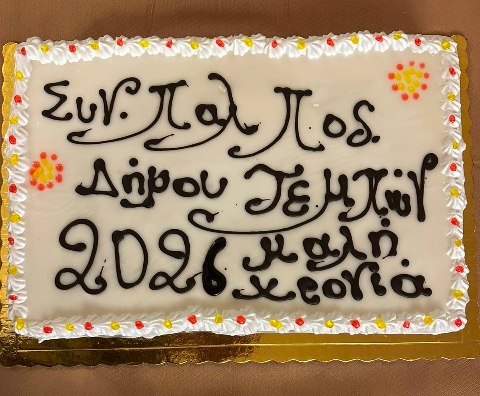 Συν. Παλ Ποδ.
Δήμου Τεμπών
2026 καλή
χρονιά